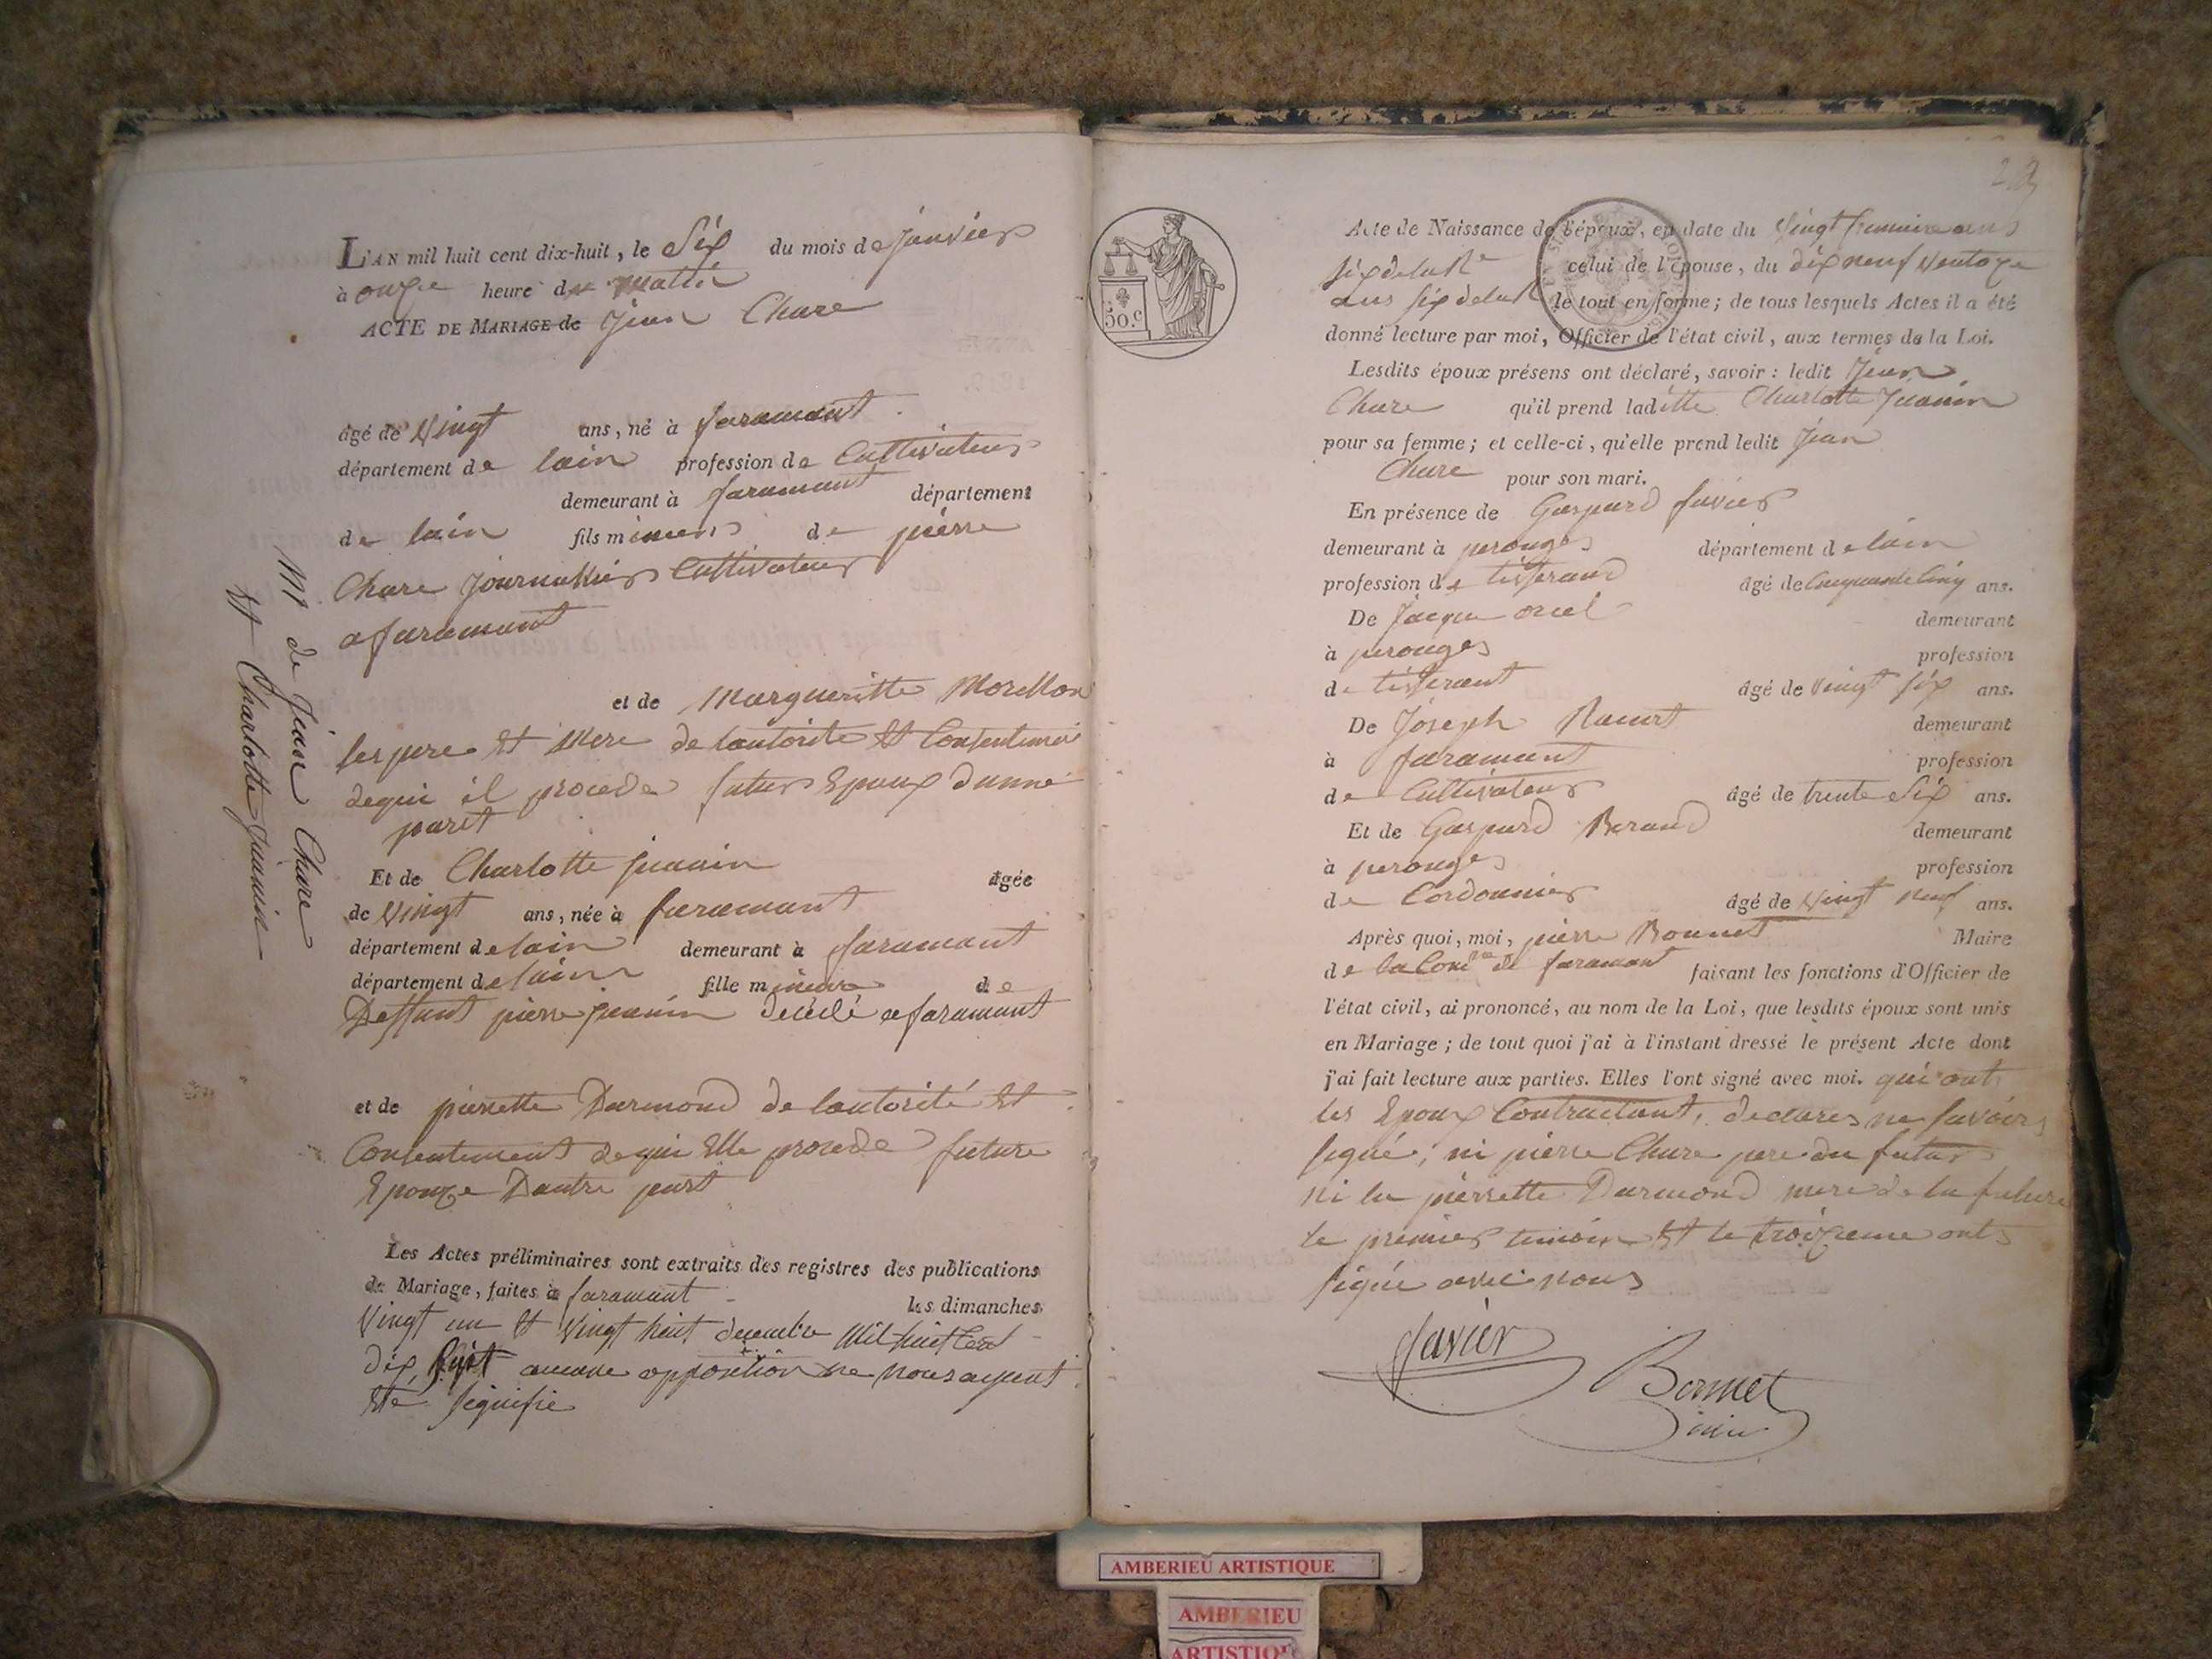 L'AN mil huit cent dix-huit, le Six du mois de janvier
à onze heure du matin
ACTE DE MARIAGE de Jean Chare
âgé de vingt ans, né à faramant
département de lain profession de Cultivateur
demeurant à faramant département
de lain fils mineur de pierre
Chare Journallier Cultivateur
a faramant
et de Margueritte Morellon
ses pere et Mere de lautorite et Consentement
dequi il procede futur Epoux dunne
part
Et de Charlotte juanin âgée
de vingt ans, née à faramant
département de lain demeurant à faramant
département de lain fille mineure de
Deffunt pierre juanin décédé a faramant
et de pierrette Darmond de lautorité et
Consentement dequi Elle procede future
Epouze Dautre part
Les Actes préliminaires sont extraits des registres des publications
de Mariage, faites à faramant les dimanches
vingt un et vingt huit decembre Mil huit Cent
dix aucune opposition ne nous ayant
été signifié
M de Jean Chare
et Charlotte Juanin
50.c
Acte de Naissance de l'époux, en date du vingt frimaire ans
six de la Re celui de l'épouse, du dix neuf ventoze
ans six de la R le tout en forme; de tous lesquels Actes il a été
donné lecture par moi, Officier de l'état civil, aux termes de la Loi.
Lesdits époux présens ont déclaré, savoir: ledit Jean
Chare qu'il prend laditte Charlotte Juanin
pour sa femme; et celle-ci, qu'elle prend ledit Jean
Chare pour son mari.
En présence de Gaspard favier
demeurant à perouges département de lain
profession de tisserand âgé de Cinquante Cinq ans.
De Jacque orcel demeurant
à perouges profession
de tisserant âgé de vingt six ans.
De Joseph demeurant
à faramant profession
de Cultivateur âgé de trente Six ans.
Et de Gaspard Beraud demeurant
à perouges profession
de Cordonnier âgé de vingt neuf ans.
Après quoi, moi, pierre Bonnet Maire
de la Comne de faramant faisant les fonctions d'Officier de
l'état civil, ai prononcé, au nom de la Loi, que lesdits époux sont unis
en Mariage; de tout quoi j'ai à l'instant dressé le présent Acte dont
j'ai fait lecture aux parties. Elles l'ont signé avec moi. qui ont
les Epoux Contractant, declares ne savoir
signé; ni pierre Chare pere du futur
ni la pierrette Darmond mere de la future
le premier temoin et le troizieme ont
signé avec nous
favier
Bonnet
AMBERIEU ARTISTIQUE
AMBERIEU
ARTISTIQUE